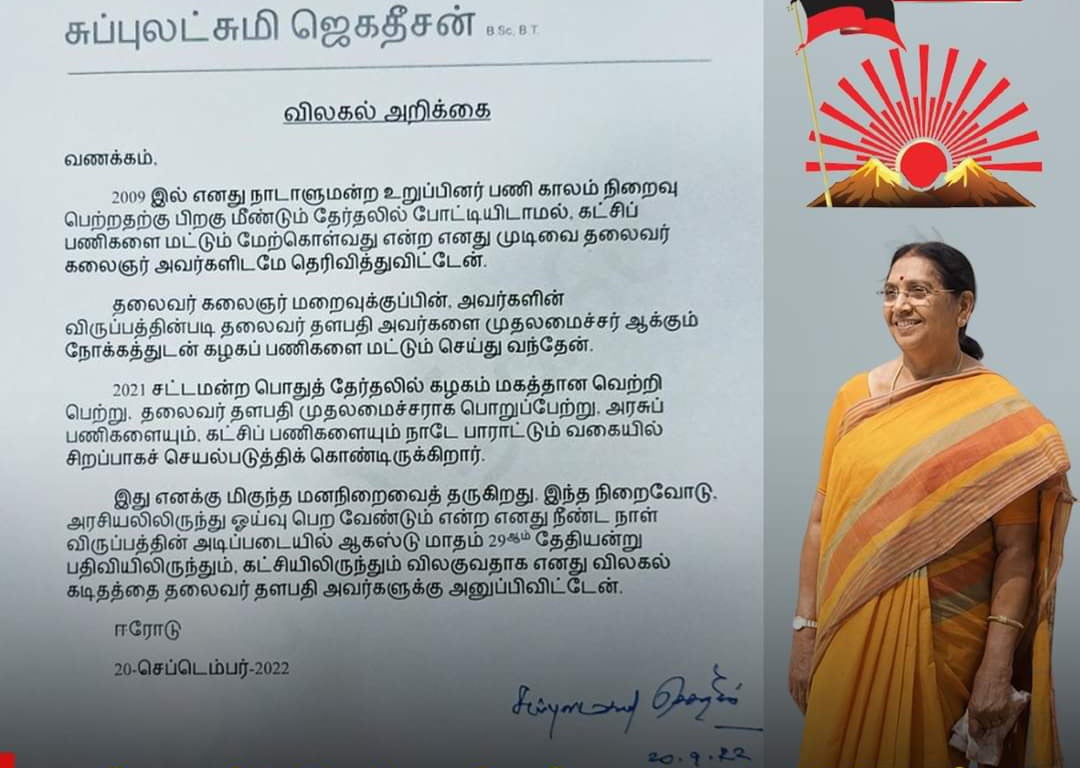 சுப்புலட்சுமி ஜெகதீசன் B.Sc, B.T.
விலகல் அறிக்கை
வணக்கம்,
2009 இல் எனது நாடாளுமன்ற உறுப்பினர் பணி காலம் நிறைவு
பெற்றதற்கு பிறகு மீண்டும் தேர்தலில் போட்டியிடாமல், கட்சிப்
பணிகளை மட்டும் மேற்கொள்வது என்ற எனது முடிவை தலைவர்
கலைஞர் அவர்களிடமே தெரிவித்துவிட்டேன்.
தலைவர் கலைஞர் மறைவுக்குப்பின், அவர்களின்
விருப்பத்தின்படி தலைவர் தளபதி அவர்களை முதலமைச்சர் ஆக்கும்
நோக்கத்துடன் கழகப் பணிகளை மட்டும் செய்து வந்தேன்.
2021 சட்டமன்ற பொதுத் தேர்தலில் கழகம் மகத்தான வெற்றி
பெற்று, தலைவர் தளபதி முதலமைச்சராக பொறுப்பேற்று, அரசுப்
பணிகளையும், கட்சிப் பணிகளையும் நாடே பாராட்டும் வகையில்
சிறப்பாகச் செயல்படுத்திக் கொண்டிருக்கிறார்.
இது எனக்கு மிகுந்த மனநிறைவைத் தருகிறது. இந்த நிறைவோடு,
அரசியலிலிருந்து ஓய்வு பெற வேண்டும் என்ற எனது நீண்ட நாள்
விருப்பத்தின் அடிப்படையில் ஆகஸ்டு மாதம் 29ஆம் தேதியன்று
பதிவியிலிருந்தும், கட்சியிலிருந்தும் விலகுவதாக எனது விலகல்
கடிதத்தை தலைவர் தளபதி அவர்களுக்கு அனுப்பிவிட்டேன்.
ஈரோடு
20-செப்டெம்பர்-2022
20.9.22